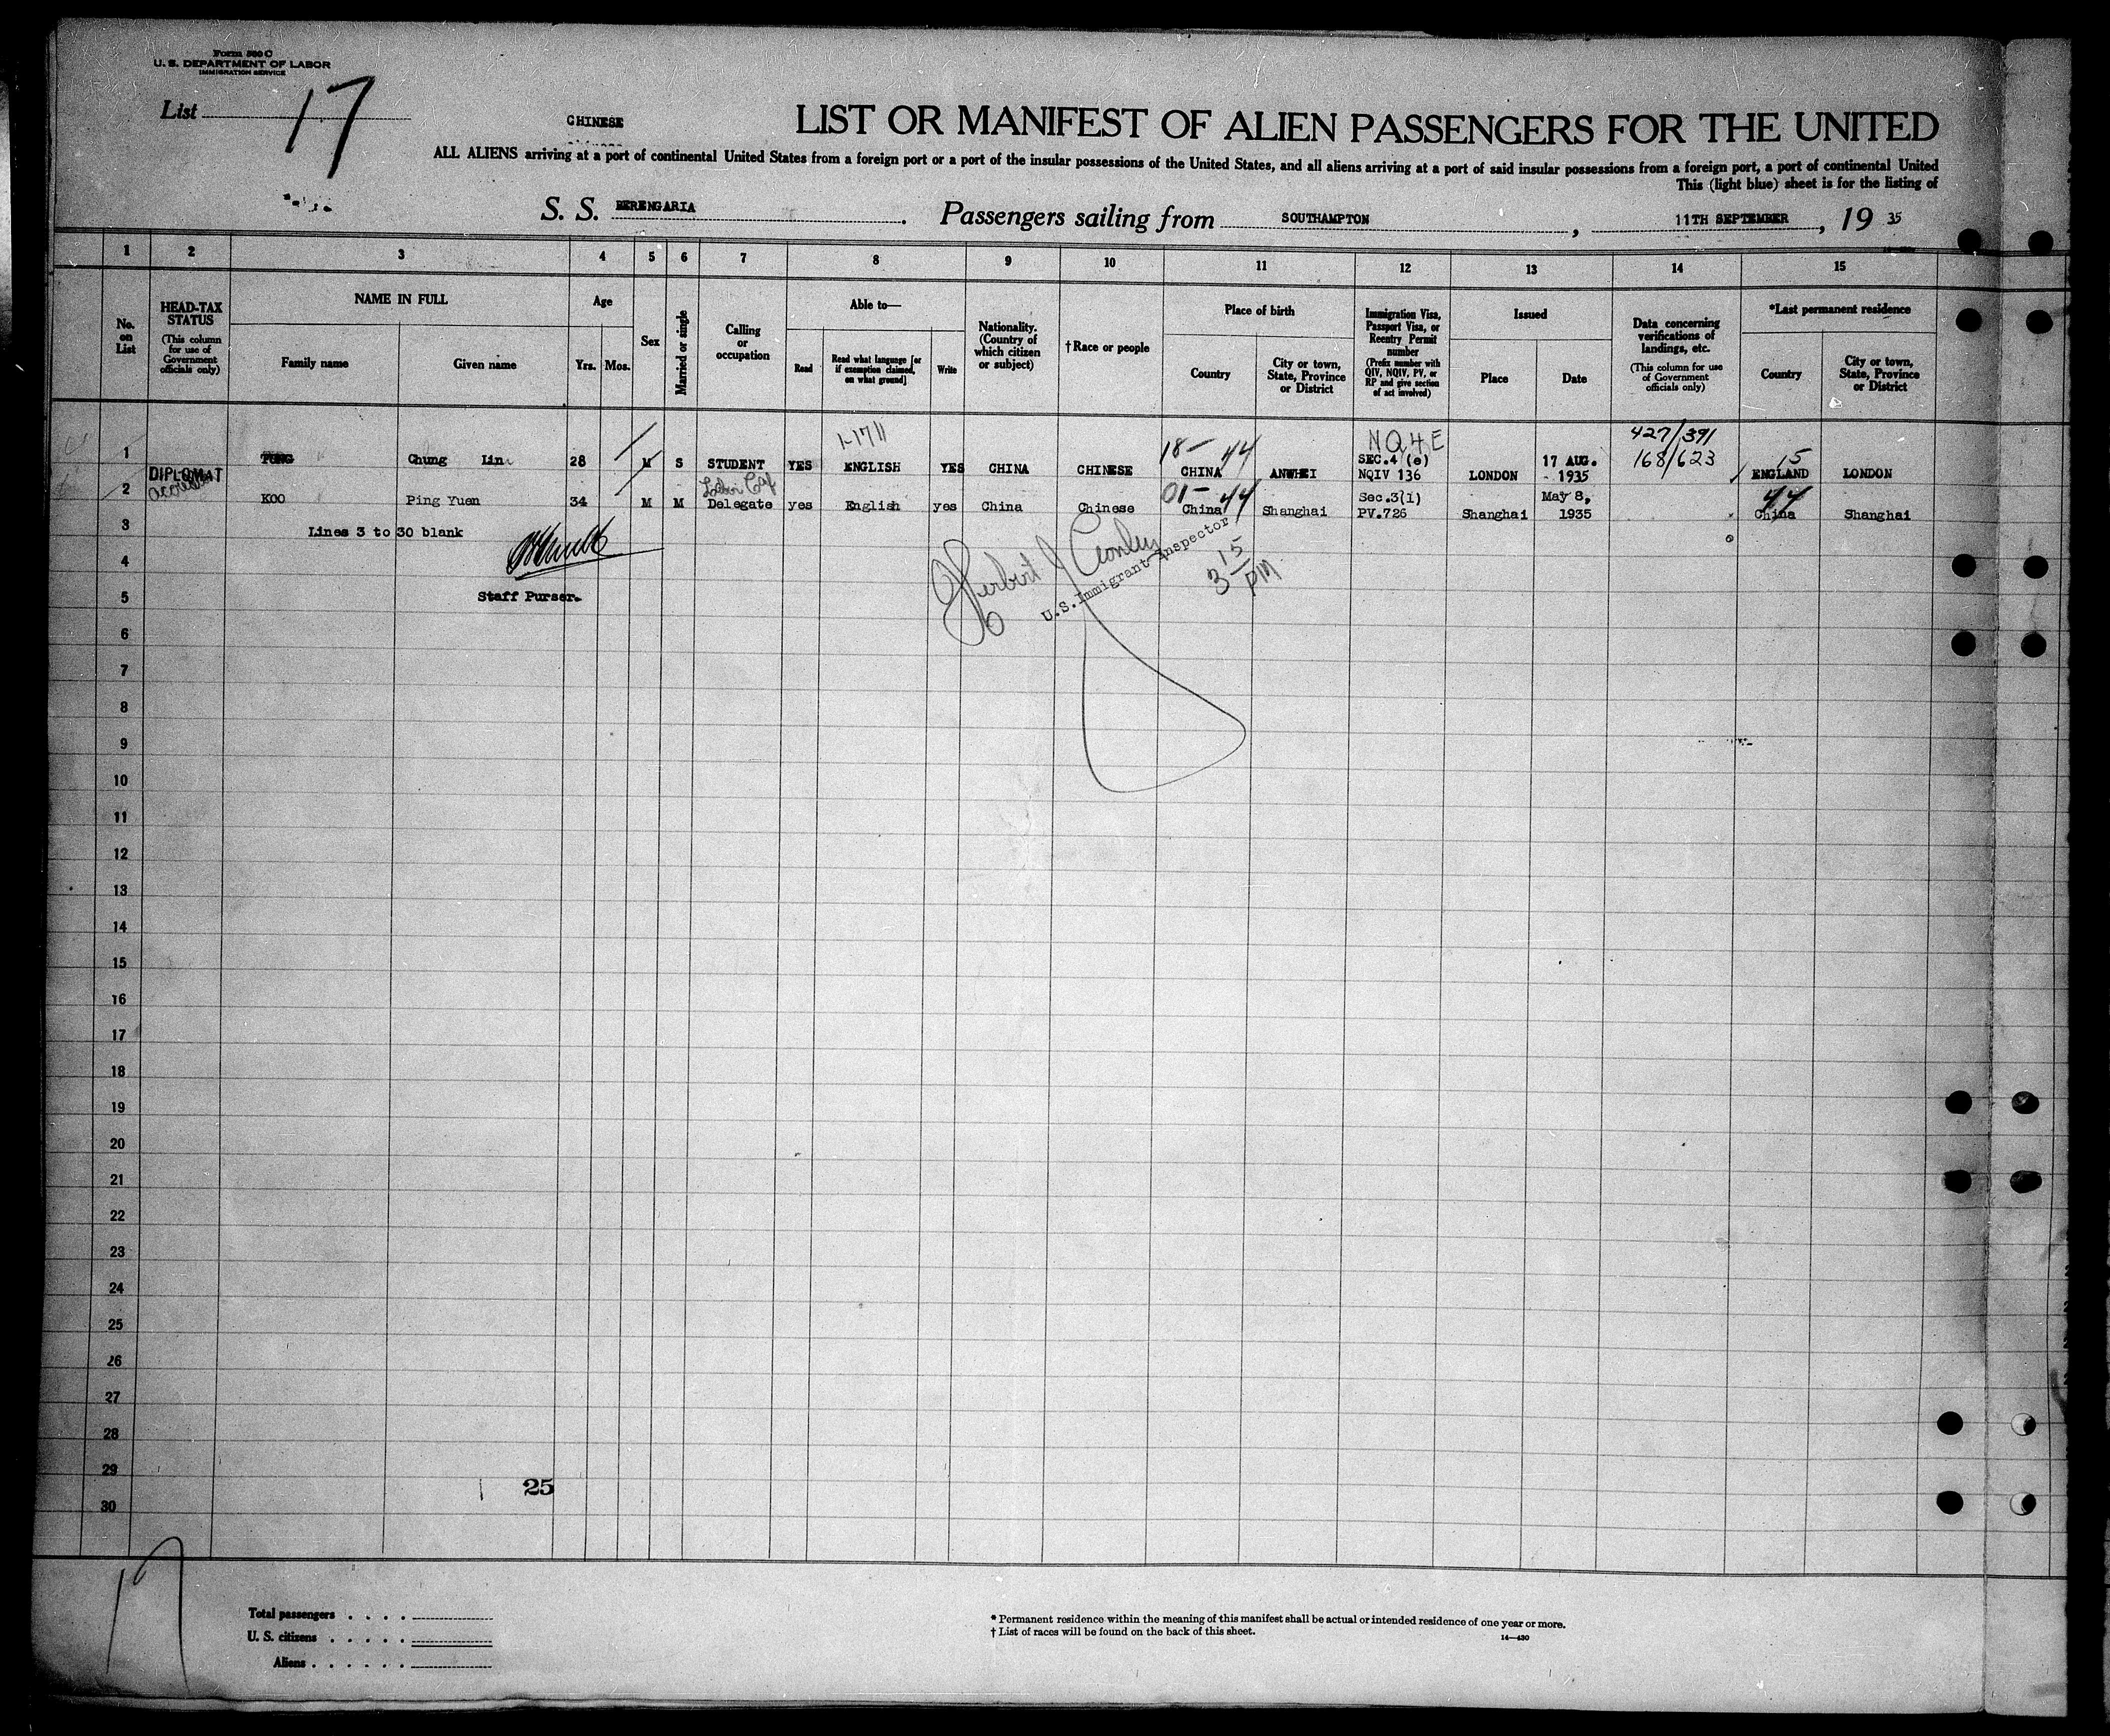 Form 500 C
U. S. DEPARTMENT OF LABOR
IMMIGRATION SERVICE
List 17
CHINESE
LIST OR MANIFEST OF ALIEN PASSENGERS FOR THE UNITED
ALL ALIENS arriving at a port of continental United States from a foreign port or a port of the insular possessions of the United States, and all aliens arriving at a port of said insular possessions from a foreign port, a port of continental United
This (light blue) sheet is for the listing of
S. S. BERENGARIA. Passengers sailing from SOUTHAMPTON, 11TH SEPTEMBER, 19 35
1 2 3 4 5 6 7 8 9 10 11 12 13 14 15
No. on List
HEAD-TAX STATUS
(This column for use of Government officials only)
NAME IN FULL
Family name
Given name
Age
Yrs.
Mos.
Sex
Married or single
Calling or occupation
Able to—
Read
Read what language [or if exemption claimed, on what ground]
Write
Nationality. (Country of which citizen or subject)
†Race or people
Place of birth
Country
City or town, State, Province or District
Immigration Visa, Passport Visa, or Reentry Permit number
(Prefix number with QIV, NQIV, PV, or RP and give section of act involved)
Issued
Place
Date
Data concerning verifications of landings, etc.
(This column for use of Government officials only)
*Last permanent residence
Country
City or town, State, Province or District
1-1711
18- 44
NQ4E
427/391
168/623
15
1 TUNG Chung Lin 28 M S STUDENT YES ENGLISH YES CHINA CHINESE CHINA ANWHEI SEC.4 (e) NQIV 136 LONDON 17 AUG. 1935 ENGLAND LONDON
DIPLOMAT
01- 44
44
2 KOO Ping Yuen 34 M M Delegate yes English yes China Chinese China Shanghai Sec.3(1) PV.726 Shanghai May 8, 1935 China Shanghai
3 Lines 3 to 30 blank
4
Herbert J Conley
U.S. Immigrant Inspector
3 15 PM
5 Staff Purser.
6
7
8
9
10
11
12
13
14
15
16
17
18
19
20
21
22
23
24
25
26
27
28
29
25
30
17
Total passengers . . . .
U. S. citizens . . . . .
Aliens . . . . . .
* Permanent residence within the meaning of this manifest shall be actual or intended residence of one year or more.
† List of races will be found on the back of this sheet.
14—430